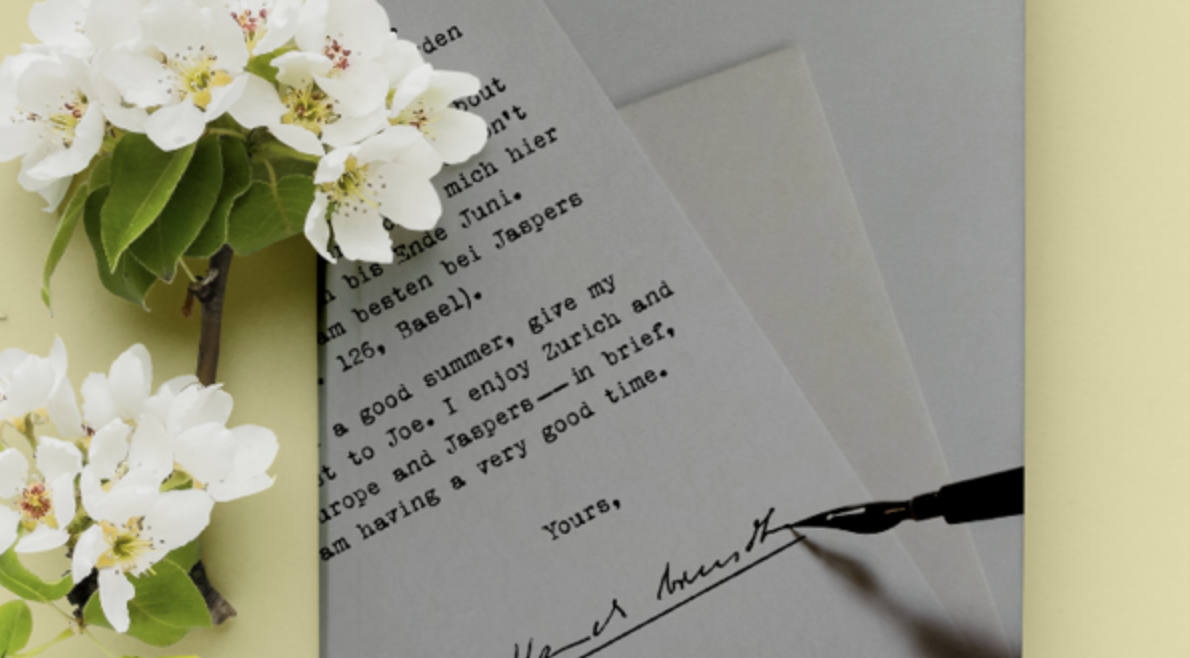 den
bout
n't
mich hier
bis Ende Juni.
am besten bei Jaspers
126, Basel).
a good summer, give my
to Joe. I enjoy Zurich and
urope and Jaspers—in brief,
am having a very good time.
Yours,